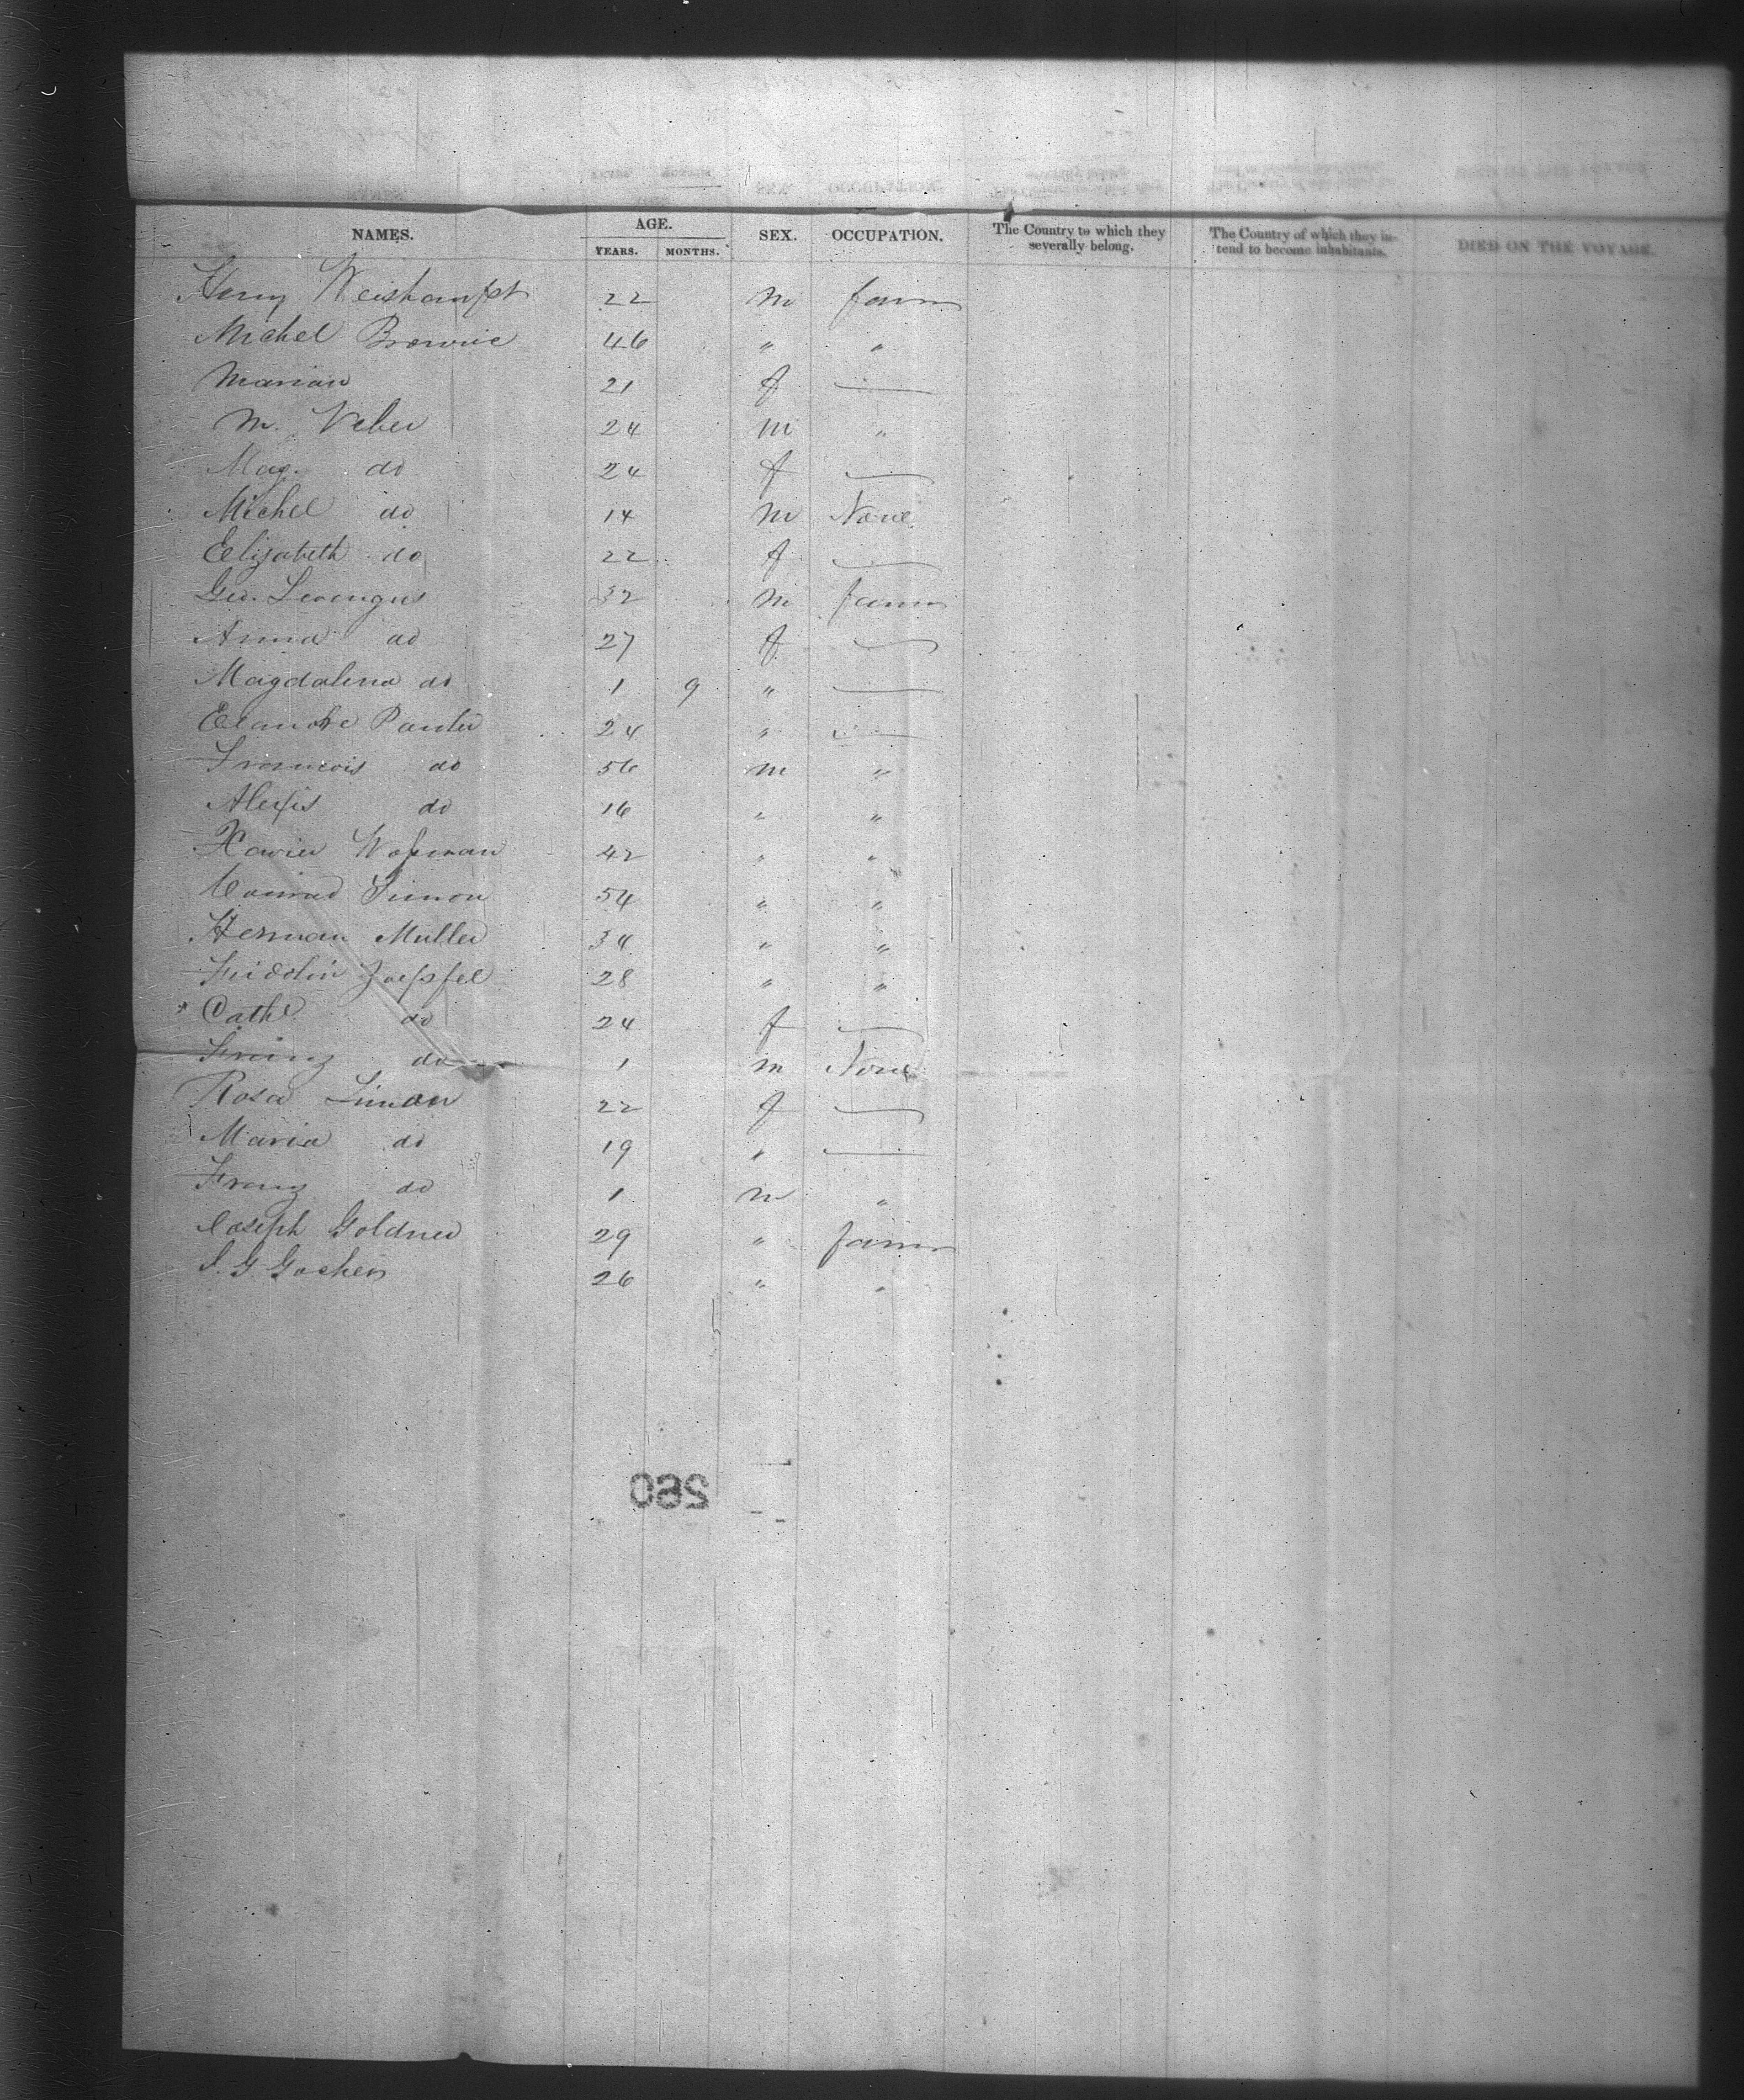 NAMES. AGE. YEARS. MONTHS. SEX. OCCUPATION. The Country to which they severally belong. The Country of which they intend to become inhabitants. DIED ON THE VOYAGE.
Henry 22 m farm
Michel Brownie 46 " "
Marian 21 f —
M. Veber 24 m "
Mag. do 24 f —
Michel do 14 m None
Elizabeth do 22 f —
Geo. 32 m farm
Anna do 27 f —
Magdalena do 1 9 " —
24 " —
Francois do 56 m "
Alexis do 16 " "
Xavier 42 " "
Conrad Simon 54 " "
Herman Muller 34 " "
Fridolin Zoepfel 28 " "
* Cath do 24 f —
Franz do 1 m None
Rosa Simon 22 f —
Maria do 19 " —
Franz do 1 m "
Joseph Goldner 29 " farm
26 " "
280